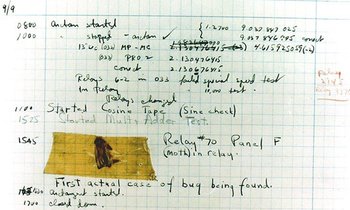 9/9
0800 Antan started
1000 " stopped - antan ✓ { 1.2700 9.037 847 025
9.037 846 995 correct
13"uc (032) MP-MC 2.130476415 (-3) 4.615925059(-2)
(033) PRO 2 2.130476415
correct 2.130676415
Relays 6-2 in 033 failed special speed test
In relay " 11.000 test.
Relays changed
1100 Started Cosine Tape (Sine check)
1525 Started Multi Adder Test.
1545 Relay #70 Panel F
(Moth) in relay.
First actual case of bug being found.
1630 antangent started.
1700 closed down.
Relay